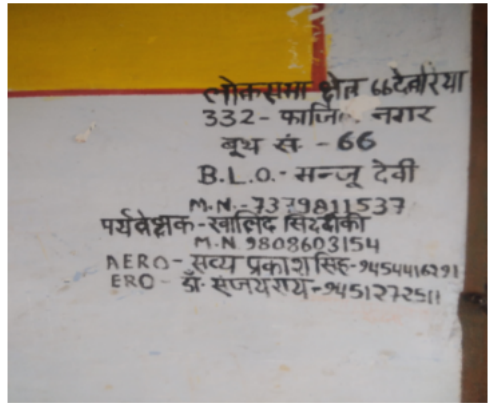 लोकसभा क्षेत्र 66देवरिया
332- फाजिल नगर
बूथ सं - 66
B.L.O.- मन्जू देवी
M.N.-7379811537
पर्यवेक्षक-खालिद सिद्दीकी
M.N 9808603154
AERO- सत्य प्रकाश सिंह-9454416291
ERO- डॉ. संजय राय-9451272511